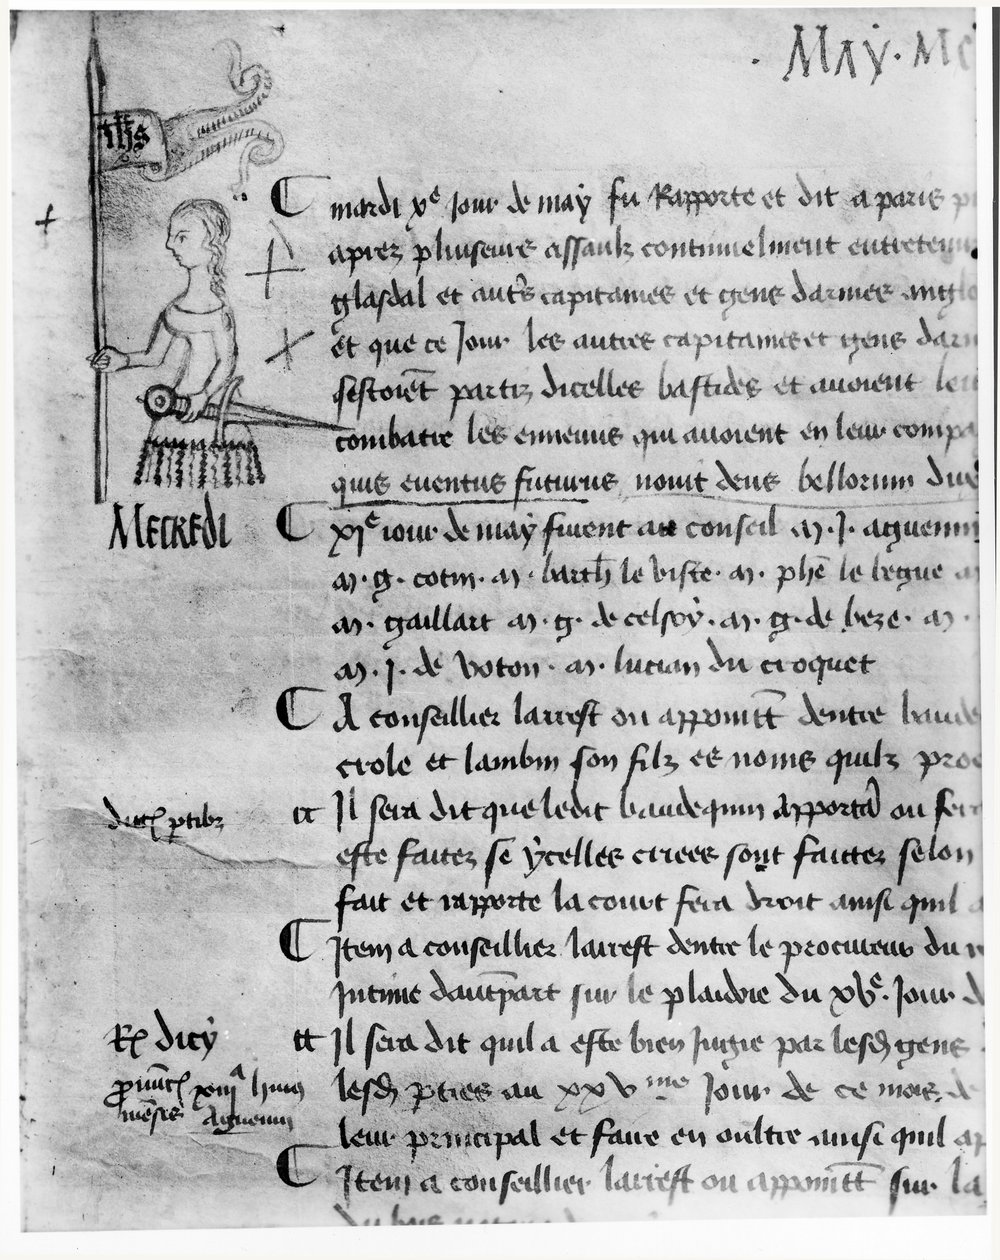 May. Me
ihs
mardi xe jour de may fu Rapporte et dit a paris p
aprez pluseurs assaulz continuelment entretenu
glasdal et autrs capitaines et gens darmes angl
et que ce Jour les autres capitaines et gens darm
sestoiēt partiz dicelles bastides et avoient leu
combatre les ennemis qui avoient en leur compa
quis eventus futurus novit deus bellorum
MERCREDI
xie jour de may furent au conseil m. J. aguenin
m. g. cotin. m. barth le viste. m. phē le begue
m. gaillart m. g. de celsoy. m. g. de beze. m.
m. j. de voton. m. lucian du croquet
A conseillier larrest ou appointt dentre baude
crole et lambin son filz es noms quilz pro
Il sera dit que ledit baudequin apportā ou fera
este faitez se ycelles criees sont faittez selon
fait et rapporte la court fera droit ainsi quil
Item a conseillier larrest dentre le procureur du
Intime dautrepart sur le plaidoie du xve. Jour d
Rx dicy
Il sera dit quil a este bien Jugie par lesd gens
lesd pties au xxv me Jour de ce mois de
mēsis Aguenin
leur principal et faire en oultre ainsi quil ap
Item a conseillier larrest ou appointt sur la